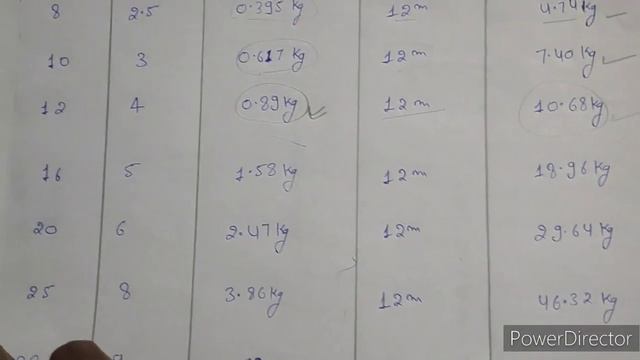 8 2.5 0.395 kg 12m 4.74 kg
10 3 0.617 kg 12m 7.40 kg
12 4 0.89 kg 12m 10.68 kg
16 5 1.58 kg 12m 18.96 kg
20 6 2.47 kg 12m 29.64 kg
25 8 3.86 kg 12m 46.32 kg
PowerDirector